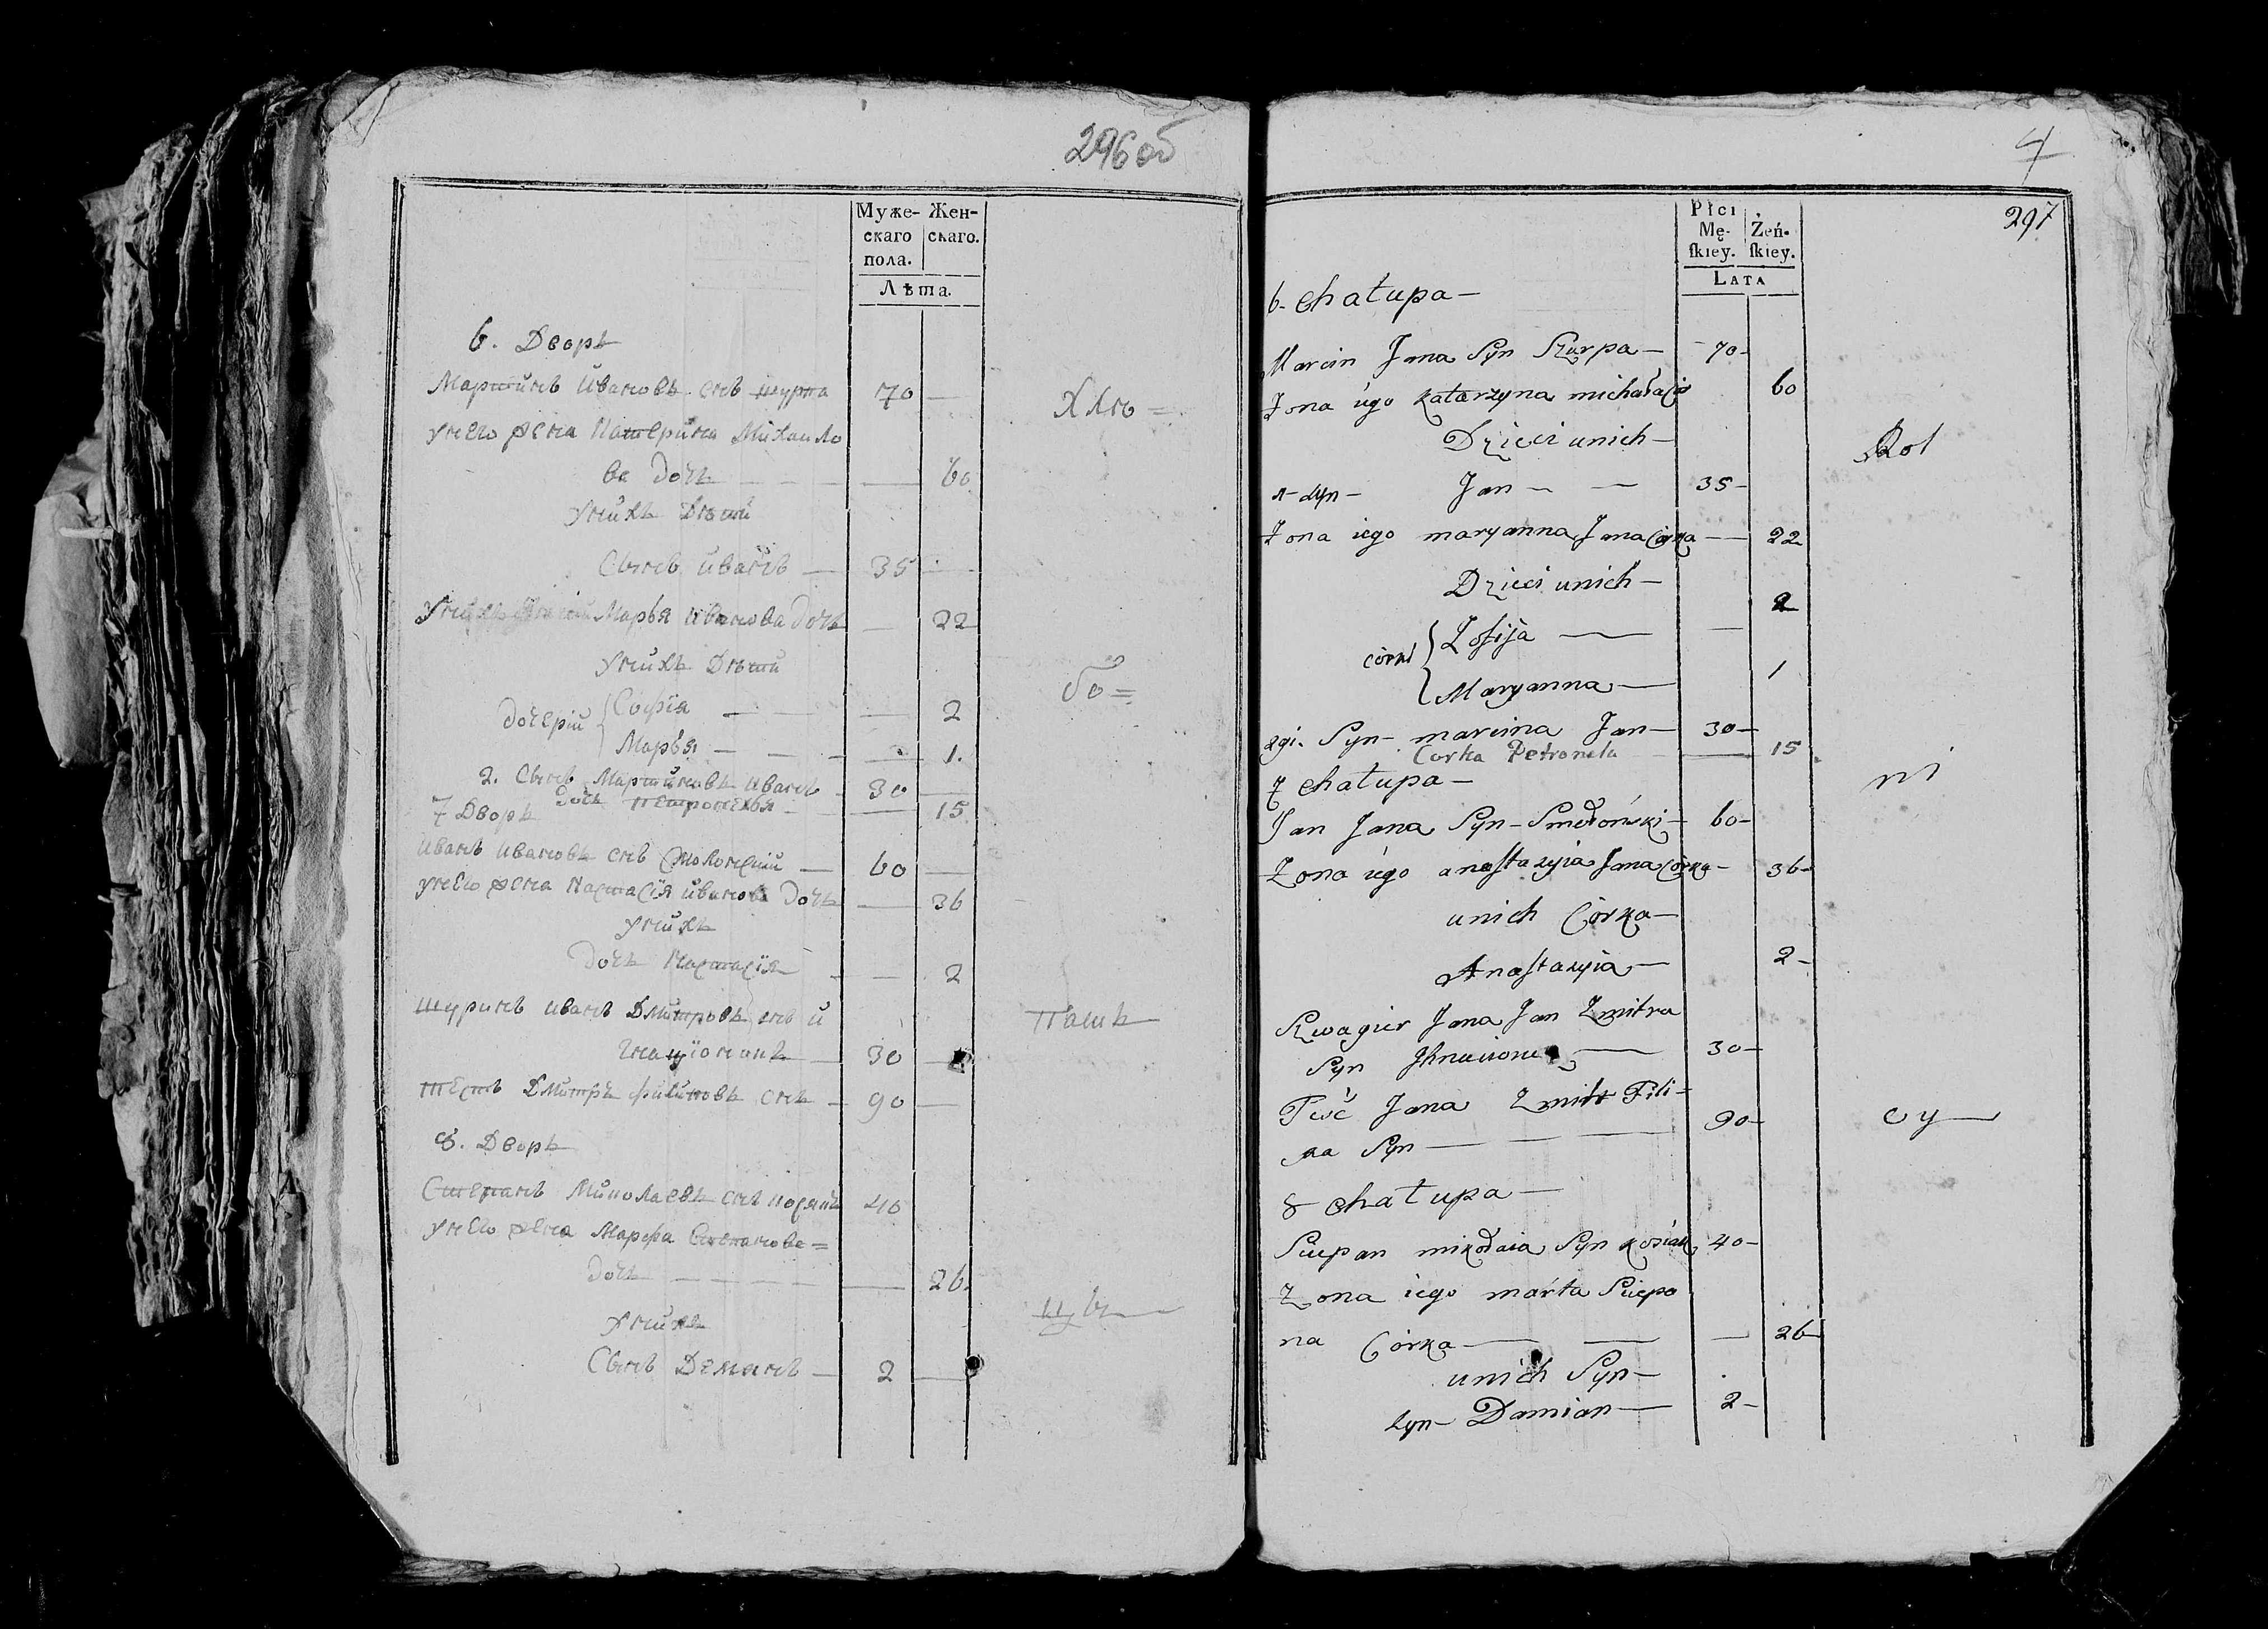 296об
Муже- Жен-
скаго скаго.
пола.
Лѣта.
6. Дворъ
Мартинъ Ивановъ снъ шурпа 70 —
унего жена Катерина Михаило
ва дочь — — — 60
унихъ Дѣти
Сынъ иванъ — 35 —
Марья Иванова дочь — 22
унихъ Дѣти
дочерїи { Софїя — — — 2
Марья — — — 1.
2. Сынъ Мартиновъ иванъ — 30 —
дочь Петронелья — — 15
7 Дворъ
Иванъ Ивановъ снъ Смолонский — 60 —
унего жена Настасїя иванова дочь — 36
унихъ
дочь Настасїя — — 2
шуринъ иванъ Дмитровъ снъ и
30 —
тесть Дмитръ филиповъ снъ — 90 —
8. Дворъ
Степанъ Миколаевъ снъ косякъ 40
унего жена Марфа Степанова =
дочь — — — — 26
унихъ
Сынъ Демянъ — 2 —
Хлю =
бо =
пашъ
цы
4
297
Płci
Mę- Żeń-
ſkiey. ſkiey.
Lata
6- Chałupa —
Marcin Jana Syn Szurpa — 70 -
Zona iego Katarzyna michała 60
Dzieci unich —
1 - syn — Jan — — 35 -
Zona iego maryanna Jana Corka — 22
Dzieci unich —
córki { Zofija — — 2
Maryanna — 1
2gi. Syn — marcina Jan — 30 —
Corka Petronela — 15
7 Chałupa —
Jan Jana Syn — Smołoński — 60 -
Zona iego anastazyia Jana Córka — 36 -
unich Córka —
Anastazyia — 2 -
Szwagier Jana Jan Zmitra
Syn — 30 —
Teść Jana Zmitr Fili=
pa Syn — — — 90 -
8 Chałupa —
Sciepan mikołaia Syn kosiak 40 -
Zona iego márta Sciepa
na Córka — — — 26
unich Syn —
syn — Damian — 2 -
Rol
ni
cy